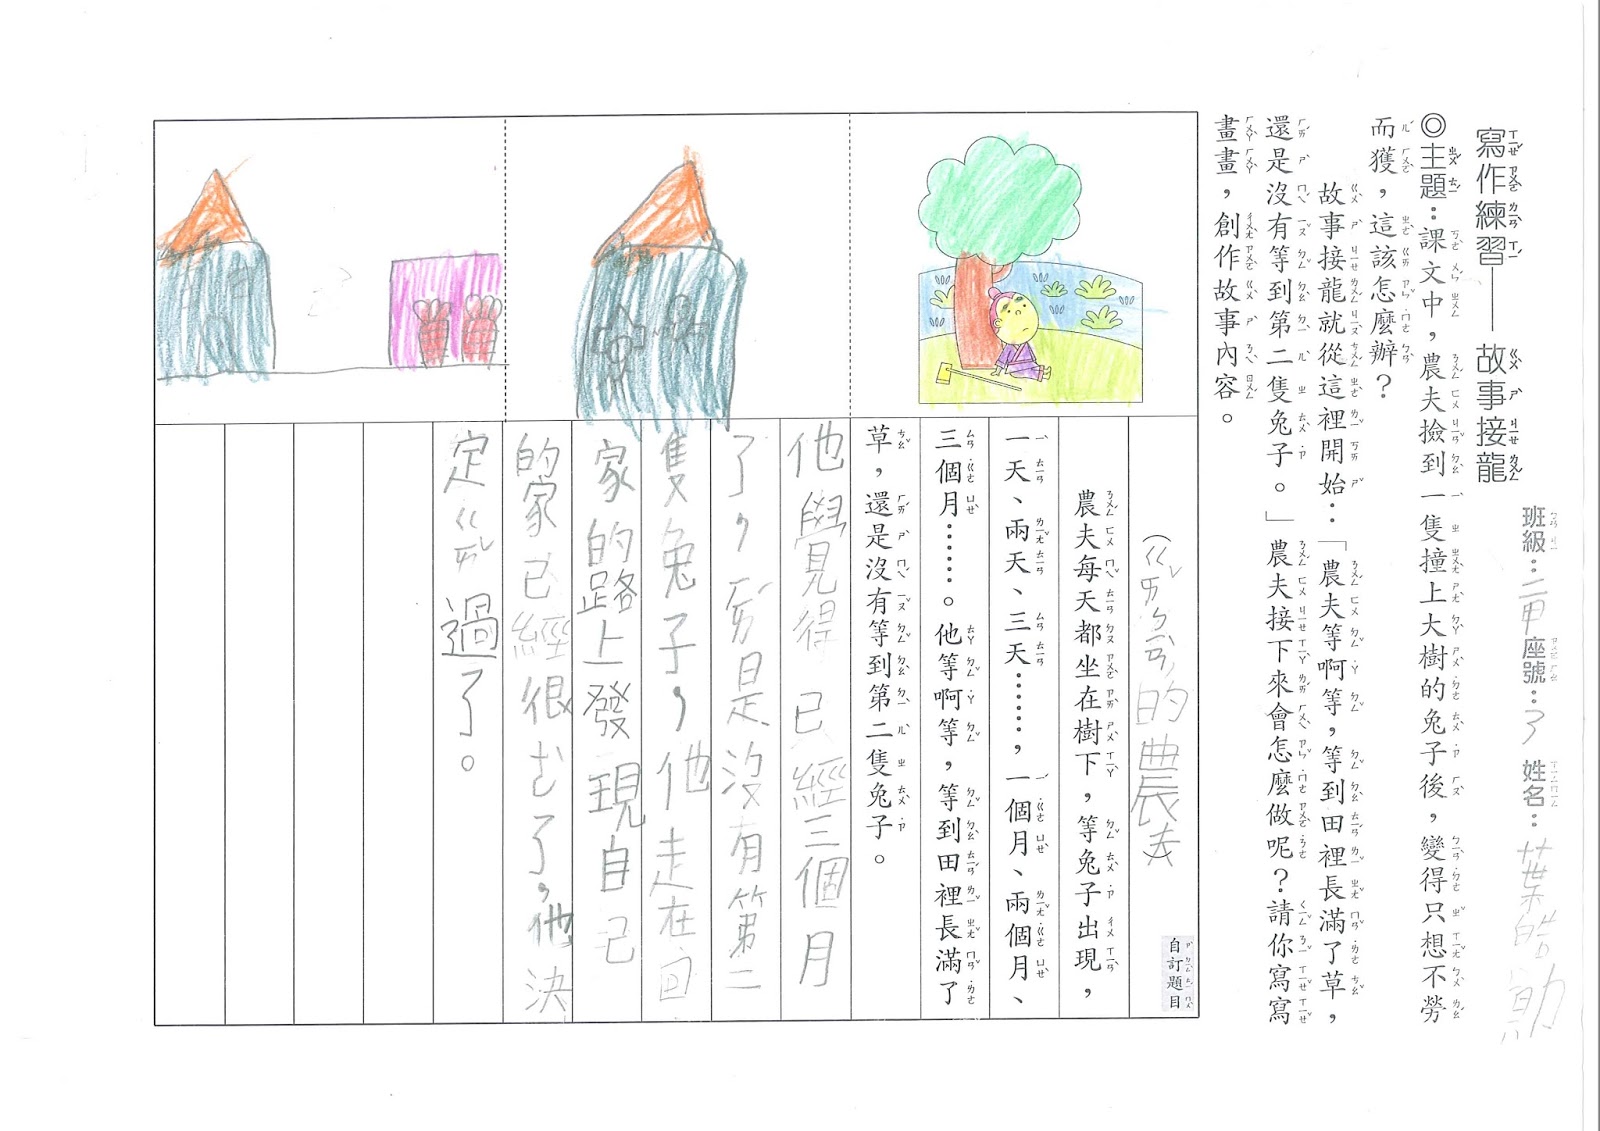 寫作練習——故事接龍
班級：二甲 座號：了 姓名：葉皓勛
◎主題：課文中，農夫撿到一隻撞上大樹的兔子後，變得只想不勞
而獲，這該怎麼辦？
故事接龍就從這裡開始：「農夫等啊等，等到田裡長滿了草，
還是沒有等到第二隻兔子。」農夫接下來會怎麼做呢？請你寫寫
畫畫，創作故事內容。
自訂題目
(ㄍㄞˇㄅㄧㄢˋ的農夫
農夫每天都坐在樹下，等兔子出現，
一天、兩天、三天……，一個月、兩個月、
三個月……。他等啊等，等到田裡長滿了
草，還是沒有等到第二隻兔子。
他覺得已經三個月
了，ㄏㄞˊ是沒有第二
隻兔子，他走在回
家的路上發現自己
的家已經很ㄜ了，他決
定ㄍㄞˇ過了。